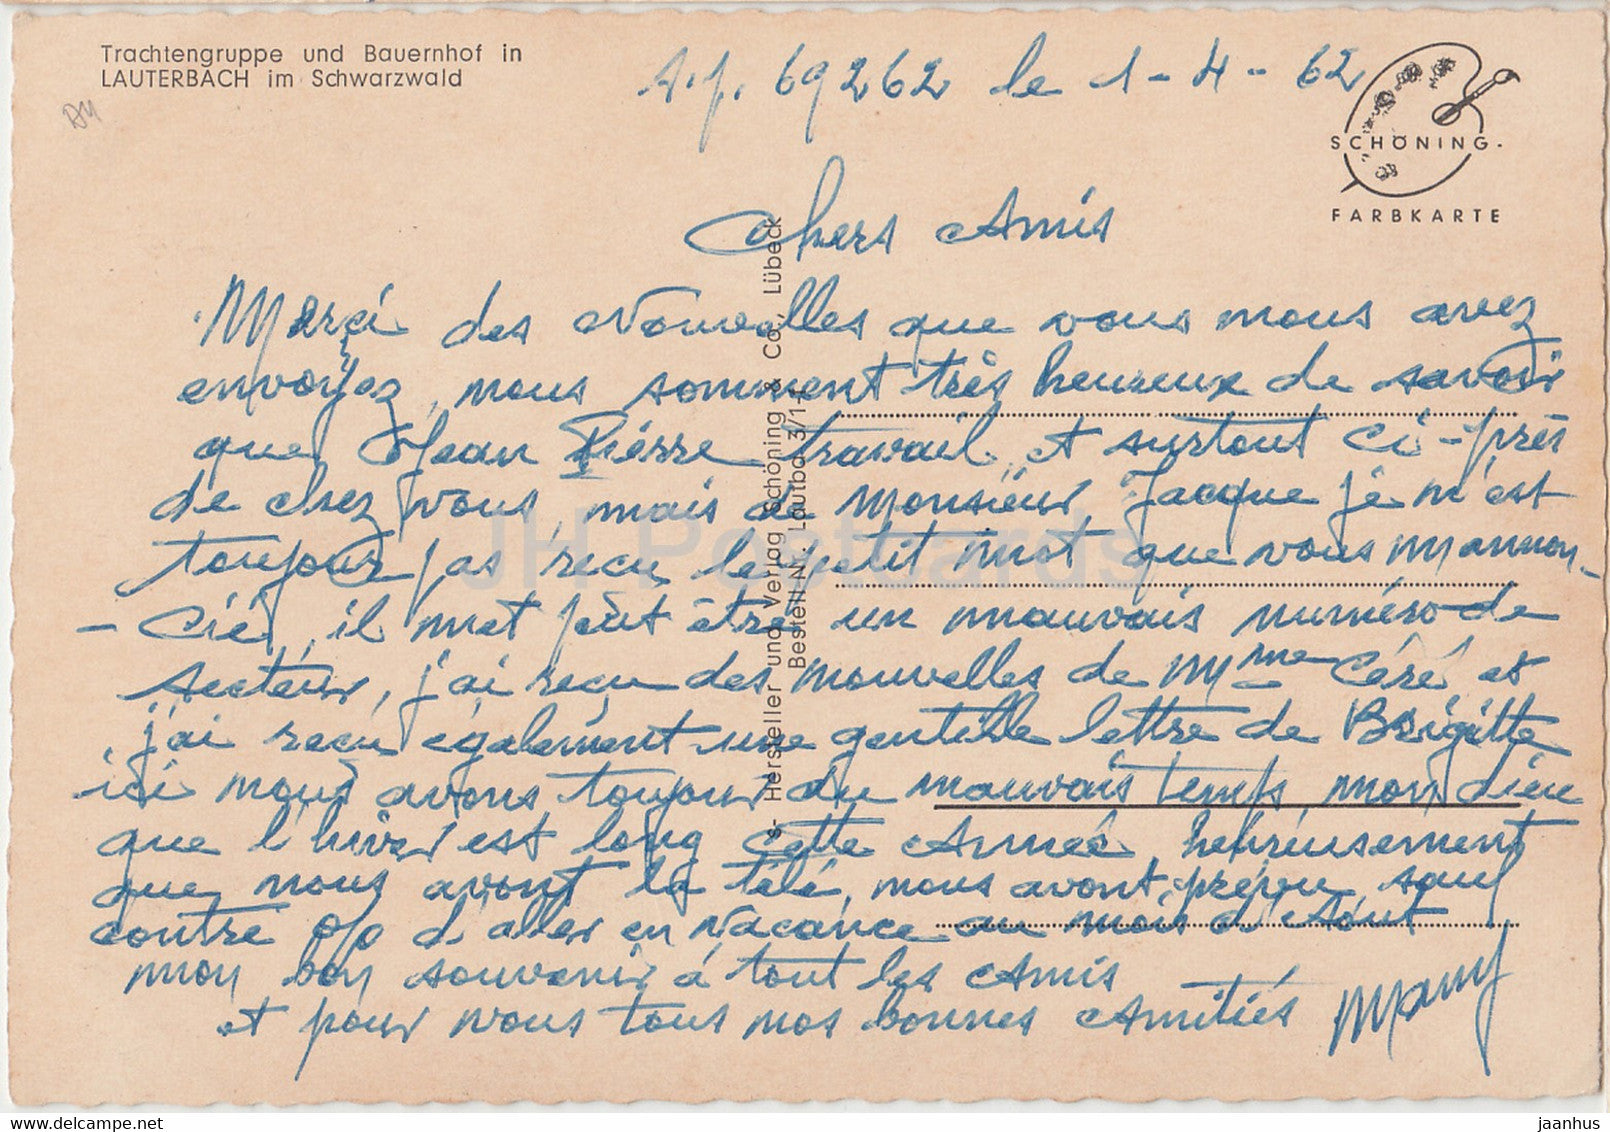 Trachtengruppe und Bauernhof in
LAUTERBACH im Schwarzwald
SCHÖNING-
FARBKARTE
69262 le 1-4-62
Chers Amis
Merçi des Nouvelles que vous nous avez
envoyez, nous somment très heureux de savoir
que Jean Piérre travail, et surtout ci-près
de chez vous, mais de Monsieur Jacque je n'est
toujour pas reçu le petit mot que vous m'annon-
- ciéz, il met peut être un mauvais numéro de
secteur, j'ai reçu des nouvelles de Mme Céré et
j'ai reçu également une gentille lettre de Brigitte
ici nous avons toujour du mauvais temps, mon dieu
que l'hiver est long cette Année, heureusement
que nous avont la télé, nous avont prévu sauf
contre op d'aller en Vacance au mois d'Aout
mon bon souvenir à tout les Amis
et pour vous tous nos bonnes Amitiés Many
s- Hersteller und Verlag Schöning & Co., Lübeck
Bestell-Nr.: Lautba 3/1-f
JH Postcards
www.delcampe.net
jaanhus